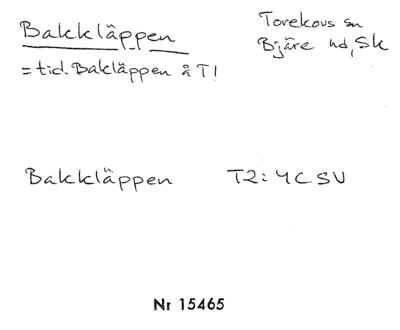 Bakkläppen
Torekovs sn
Bjäre hd, Sk
= tid. Bakläppen å T1
Bakkläppen T2: 4C SV
Nr 15465